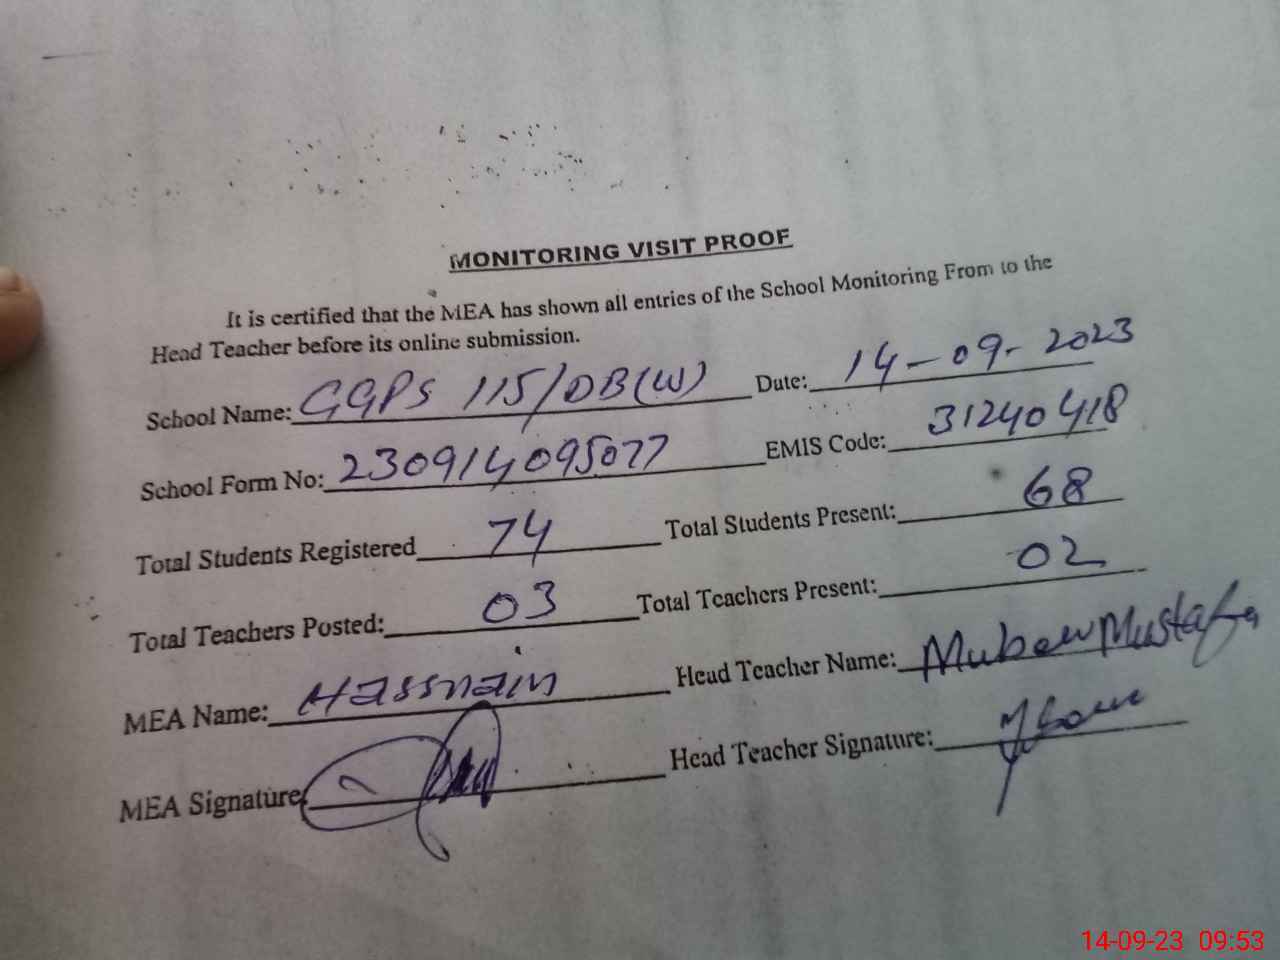 MONITORING VISIT PROOF
It is certified that the MEA has shown all entries of the School Monitoring From to the
Head Teacher before its online submission.
School Name: GGPS 115/DB(W) Date: 14-09-2023
School Form No: 230914095077 EMIS Code: 31240418
Total Students Registered 74 Total Students Present: 68
Total Teachers Posted: 03 Total Teachers Present: 02
MEA Name: Hassnain Head Teacher Name: Mustafa
MEA Signature Head Teacher Signature:
14-09-23 09:53